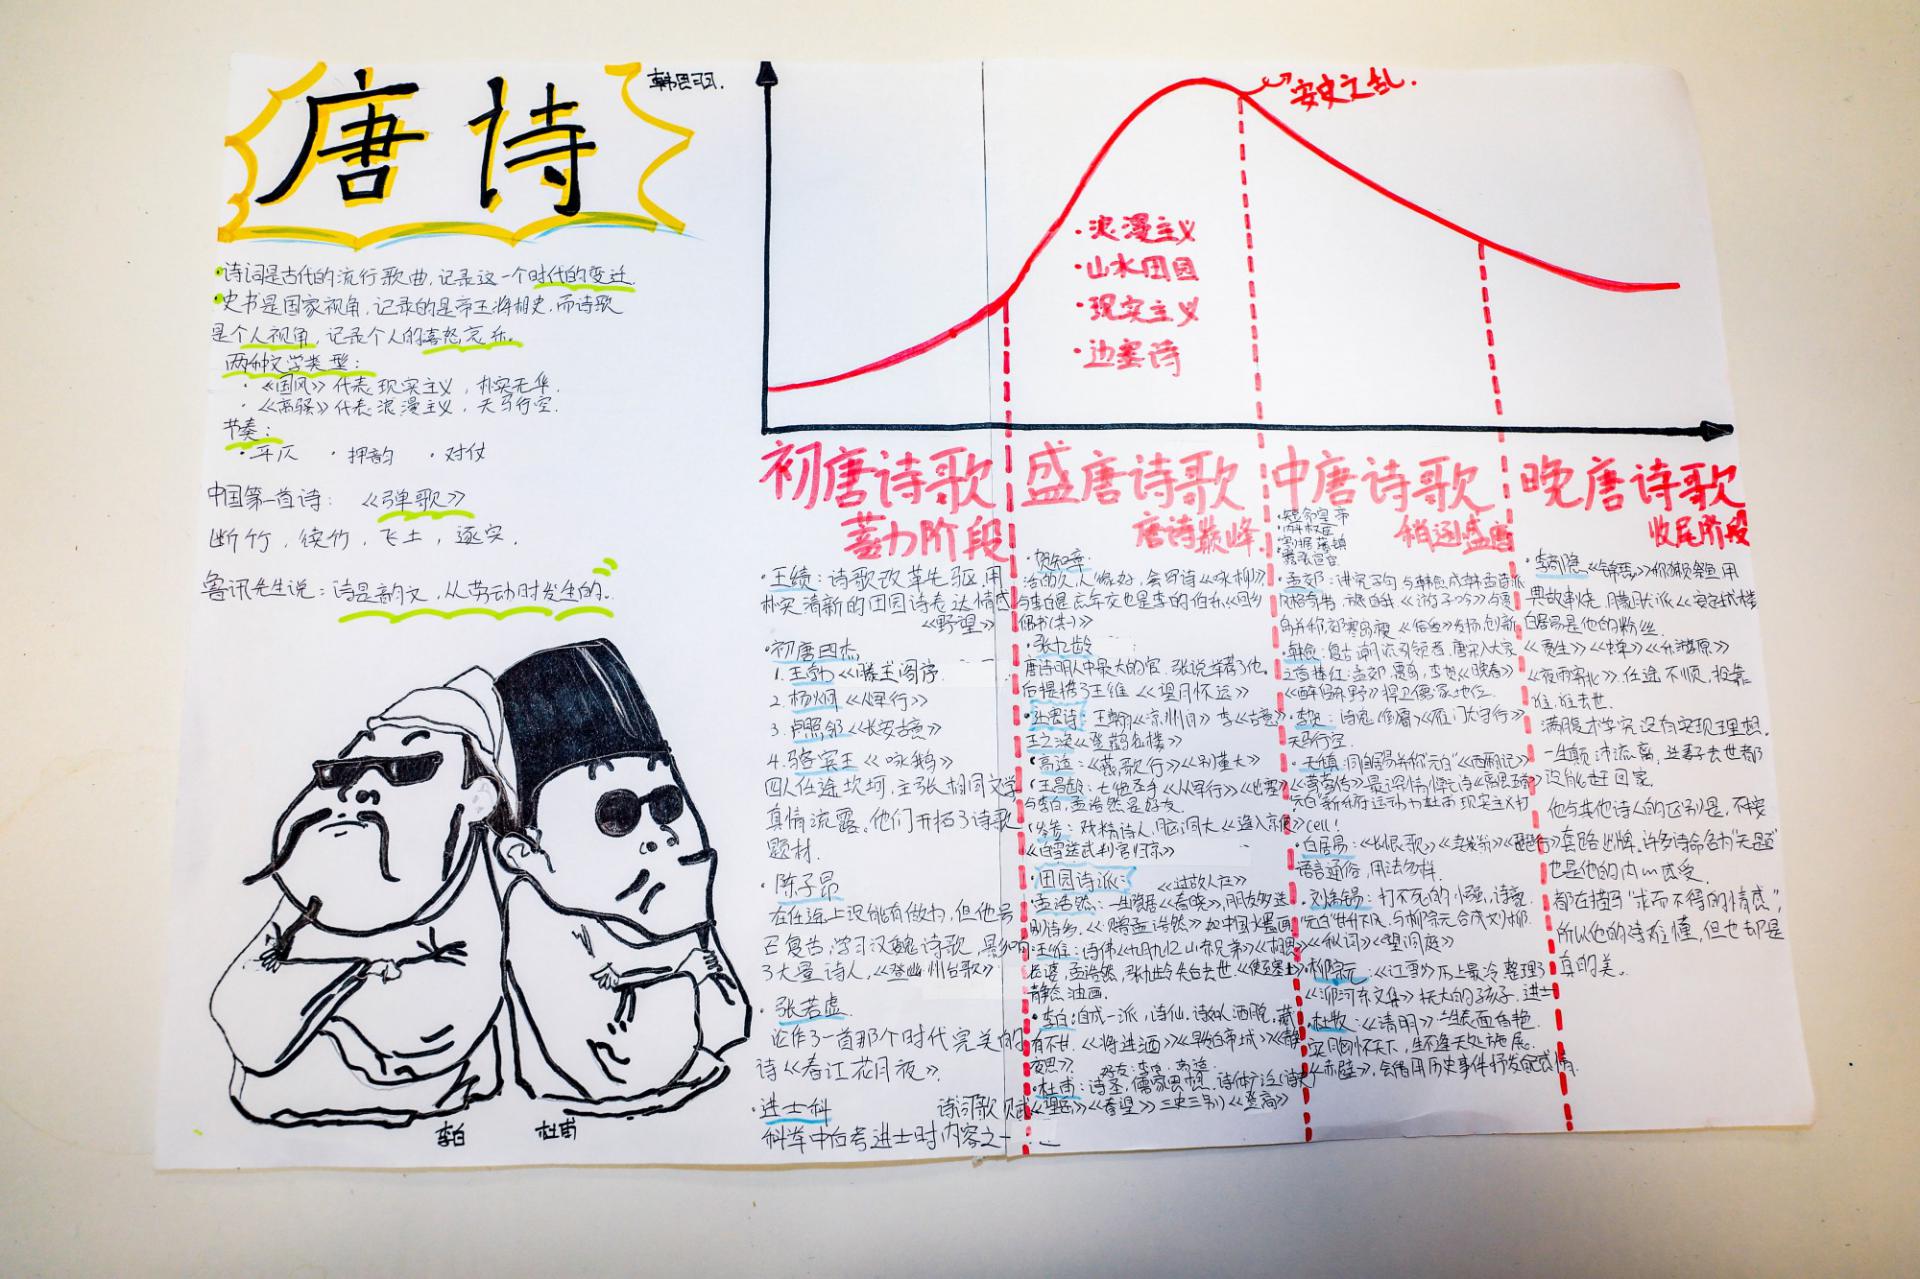 唐诗
韩思羽.
·诗词是古代的流行歌曲,记录这一个时代的变迁.
·史书是国家视角,记录的是帝王将相史,而诗歌
是个人视角,记录个人的喜怒哀乐。
两种文学类型:
·《国风》代表现实主义,朴实无华.
·《离骚》代表浪漫主义,天马行空.
节奏:
·平仄 ·押韵 ·对仗
中国第一首诗:《弹歌》
断竹,续竹,飞土,逐宍.
鲁迅先生说:诗是韵文,从劳动时发生的。
李白 杜甫
安史之乱.
·浪漫主义
·山水田园
·现实主义
·边塞诗
初唐诗歌
蓄力阶段
·王绩:诗歌改革先驱用
朴实清新的田园诗表达情感
《野望》
·初唐四杰
1.王勃《滕王阁序
2.杨炯《从军行》
3.卢照邻《长安古意》
4.骆宾王《咏鹅》
四人仕途坎坷,主张相同文学
真情流露。他们开拓了诗歌
题材.
·陈子昂
在仕途上没能有做为,但他号
召复古,学习汉魏诗歌,影响
了大量诗人,《登幽州台歌》
·张若虚
论作了一首那个时代完美的
诗《春江花月夜》.
·进士科 诗词歌赋
科举中白考进士时内容之一
盛唐诗歌
唐诗巅峰
·贺知章
活的久,人缘好,会写诗《咏柳》
与李白是忘年交也是李的伯乐《回乡
偶书(其一)》
·张九龄
唐诗明人中最大的官,张说举荐了他。
后提携了王维《望月怀远》
·边塞诗:王翰《凉州词》李《古意》
王之涣《登鹳雀楼》
高适:《燕歌行》《别董大》
王昌龄:七绝圣手《从军行》《出塞》
与李白,孟浩然是好友.
岑参:戏精诗人,脑洞大《逢入京使》
《白雪送武判官归京》
·田园诗派: 《过故人庄》
孟浩然:一生隐居《春晓》,朋友多送
别诗多,《赠孟浩然》如中国水墨画
王维:诗佛《九月九忆山东兄弟》《相思》
老婆,孟浩然,张九龄先后去世《使至塞上》
静态油画.
·李白:自成一派,诗仙,诗如人洒脱,藏
有不世.《将进酒》《早发白帝城》《静
夜思》. 好友:李白,高适
·杜甫:诗圣,儒家思想,诗体广泛(诗史)
《望岳》《春望》三吏三别《登高》
中唐诗歌
稍逊盛唐
·短命皇帝
·内有权臣
·割据藩镇
·嚣张宦官
《游子吟》
·韩愈:复古潮流引领者,唐宋八大家
之首
捍卫儒家地位.
·李贺:诗鬼 《雁门太守行》
天马行空.
·元稹:同白居易并称"元白"《西厢记》
·白居易:《长恨歌》《卖炭翁》《琵琶行》
语言通俗,用法勿样.
·刘禹锡:打不死的小强,诗豪.
与柳宗元合成刘柳.
《秋词》《望洞庭》
·柳宗元:《江雪》历上最冷,整理了
·杜牧:《清明》
实则胸怀天下,生不逢天处施展.
《赤壁》,会借用历史事件抒发自己感情.
晚唐诗歌
收尾阶段
·李商隐《锦瑟》称獭祭鱼用
典故事烧,朦胧派《安定城楼
白居易是他的粉丝.
《贾生》《蝉》《乐游原》
《夜雨寄北》.仕途不顺,投靠
谁,谁去世.
满腹才学究没有实现理想.
一生颠沛流离,连妻子去世都
没能赶回家.
他与其他诗人的区别是,不按
套路出牌.许多诗命名为"无题"
也是他的内心感受.
都在描写"求而不得的情感",
所以他的诗难懂,但也却是
真的美。